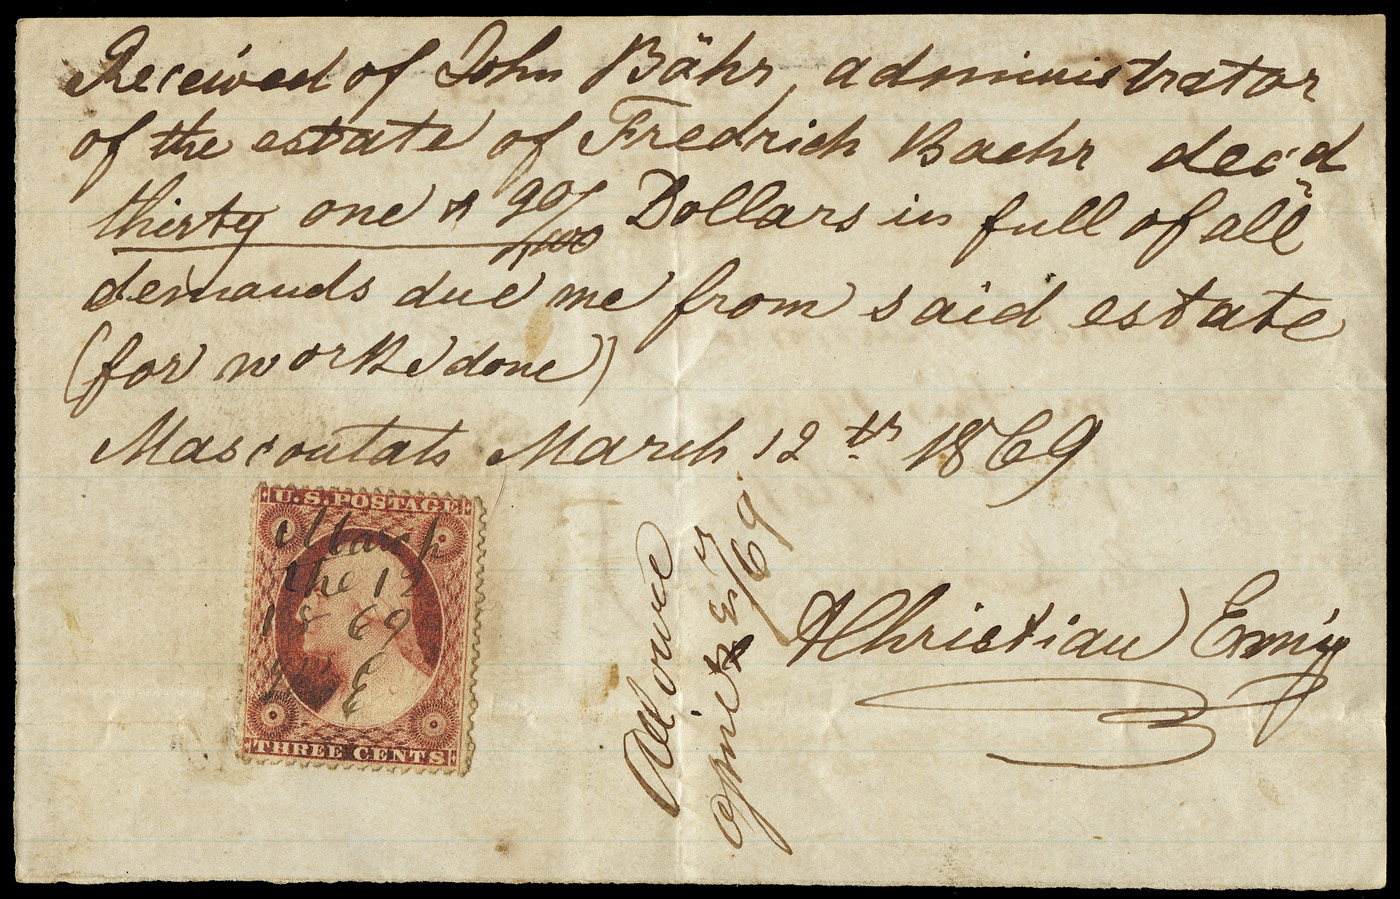 Received of John Bähr, administrator
of the estate of Fredrich Baehr dec'd
thirty one & 90/100 Dollars in full of all
demands due me from said estate
(for worke done)
Mascoutah March 12th 1869
U.S. POSTAGE
March
the 12
1869
E
THREE CENTS
Allowed
69
Christian Emig